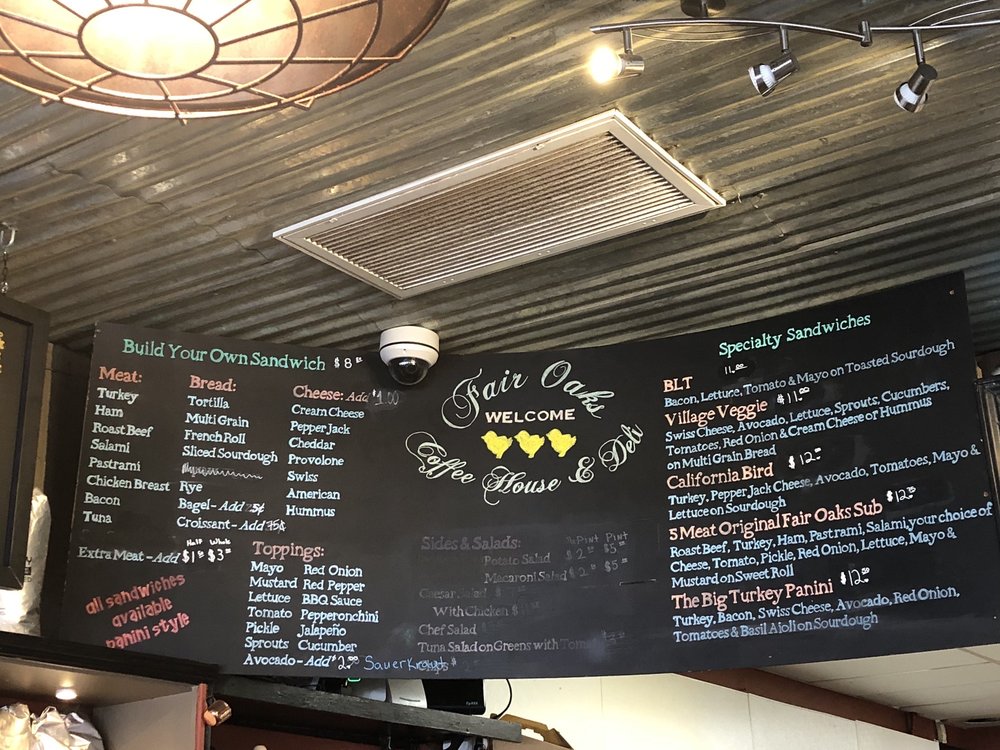 Build Your Own Sandwich $8
Meat:
Turkey
Ham
Roast Beef
Salami
Pastrami
Chicken Breast
Bacon
Tuna
Half Whole
Extra Meat - Add $1.50 $3.00
all sandwiches
available
panini style
Bread:
Tortilla
Multi Grain
French Roll
Sliced Sourdough
Rye
Bagel - Add
Croissant - Add 75¢
Cheese: Add $1.00
Cream Cheese
Pepper Jack
Cheddar
Provolone
Swiss
American
Hummus
Toppings:
Mayo Red Onion
Mustard Red Pepper
Lettuce BBQ Sauce
Tomato Pepperonchini
Pickle Jalapeño
Sprouts Cucumber
Avocado - Add $2.00 Sauerkraut
Fair Oaks
WELCOME
Coffee House & Deli
Sides & Salads:
½ Pint Pint
Potato Salad $2 $5
Macaroni Salad $2 $5
Caesar Salad
With Chicken
Chef Salad
Tuna Salad on Greens with
Specialty Sandwiches
11.00
BLT
Bacon, Lettuce, Tomato & Mayo on Toasted Sourdough
Village Veggie $11.00
Swiss Cheese, Avocado, Lettuce, Sprouts, Cucumbers,
Tomatoes, Red Onion & Cream Cheese or Hummus
on Multi Grain Bread
California Bird $12
Turkey, Pepper Jack Cheese, Avocado, Tomatoes, Mayo &
Lettuce on Sourdough
5 Meat Original Fair Oaks Sub $12
Roast Beef, Turkey, Ham, Pastrami, Salami, your choice of
Cheese, Tomato, Pickle, Red Onion, Lettuce, Mayo &
Mustard on Sweet Roll
The Big Turkey Panini $12
Turkey, Bacon, Swiss Cheese, Avocado, Red Onion,
Tomatoes & Basil Aioli on Sourdough